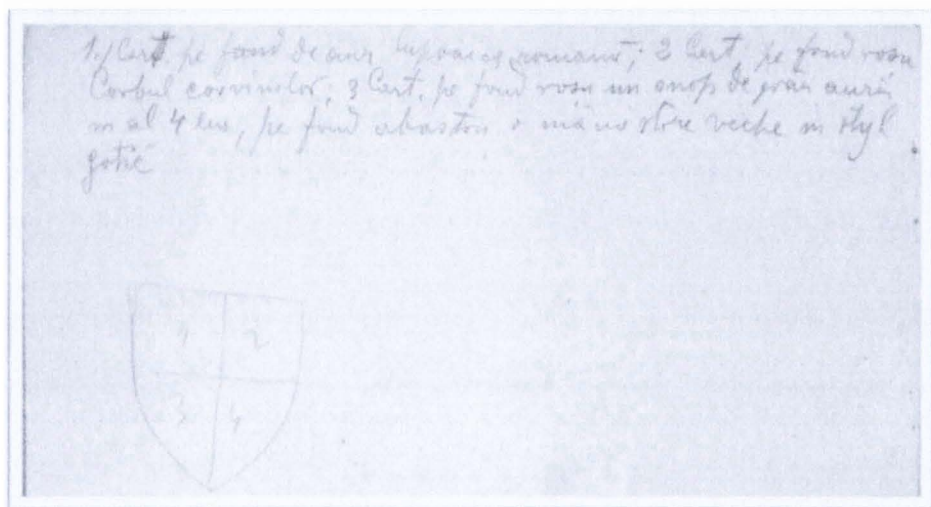 1./ Cart pe fond de aur lupoaica romană; 2 Cart, pe fond rosu
Corbul corvinilor; 3 Cart. pe fond rosu un snop de grau auriu
in al 4 lea, pe fond albastru o mănăstire veche in styl
gotic
1 2
3 4